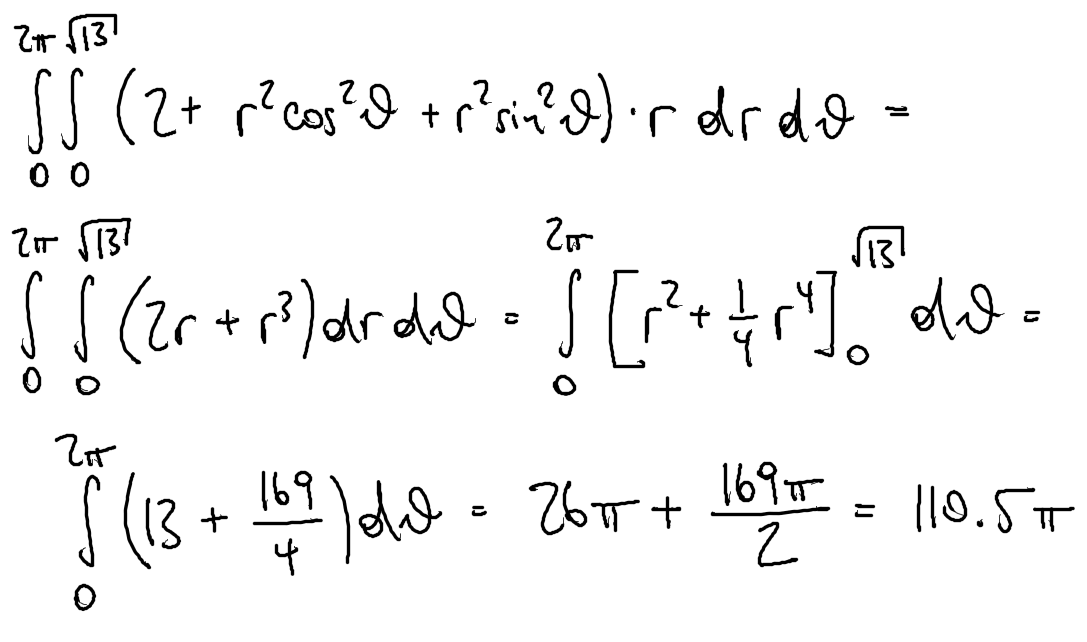 ∫_0^{2π} ∫_0^{√13} (2 + r²cos²ϑ + r²sin²ϑ)·r dr dϑ =
∫_0^{2π} ∫_0^{√13} (2r + r³) dr dϑ = ∫_0^{2π} [r² + 1/4 r⁴]_0^{√13} dϑ =
∫_0^{2π} (13 + 169/4) dϑ = 26π + 169π/2 = 110.5π